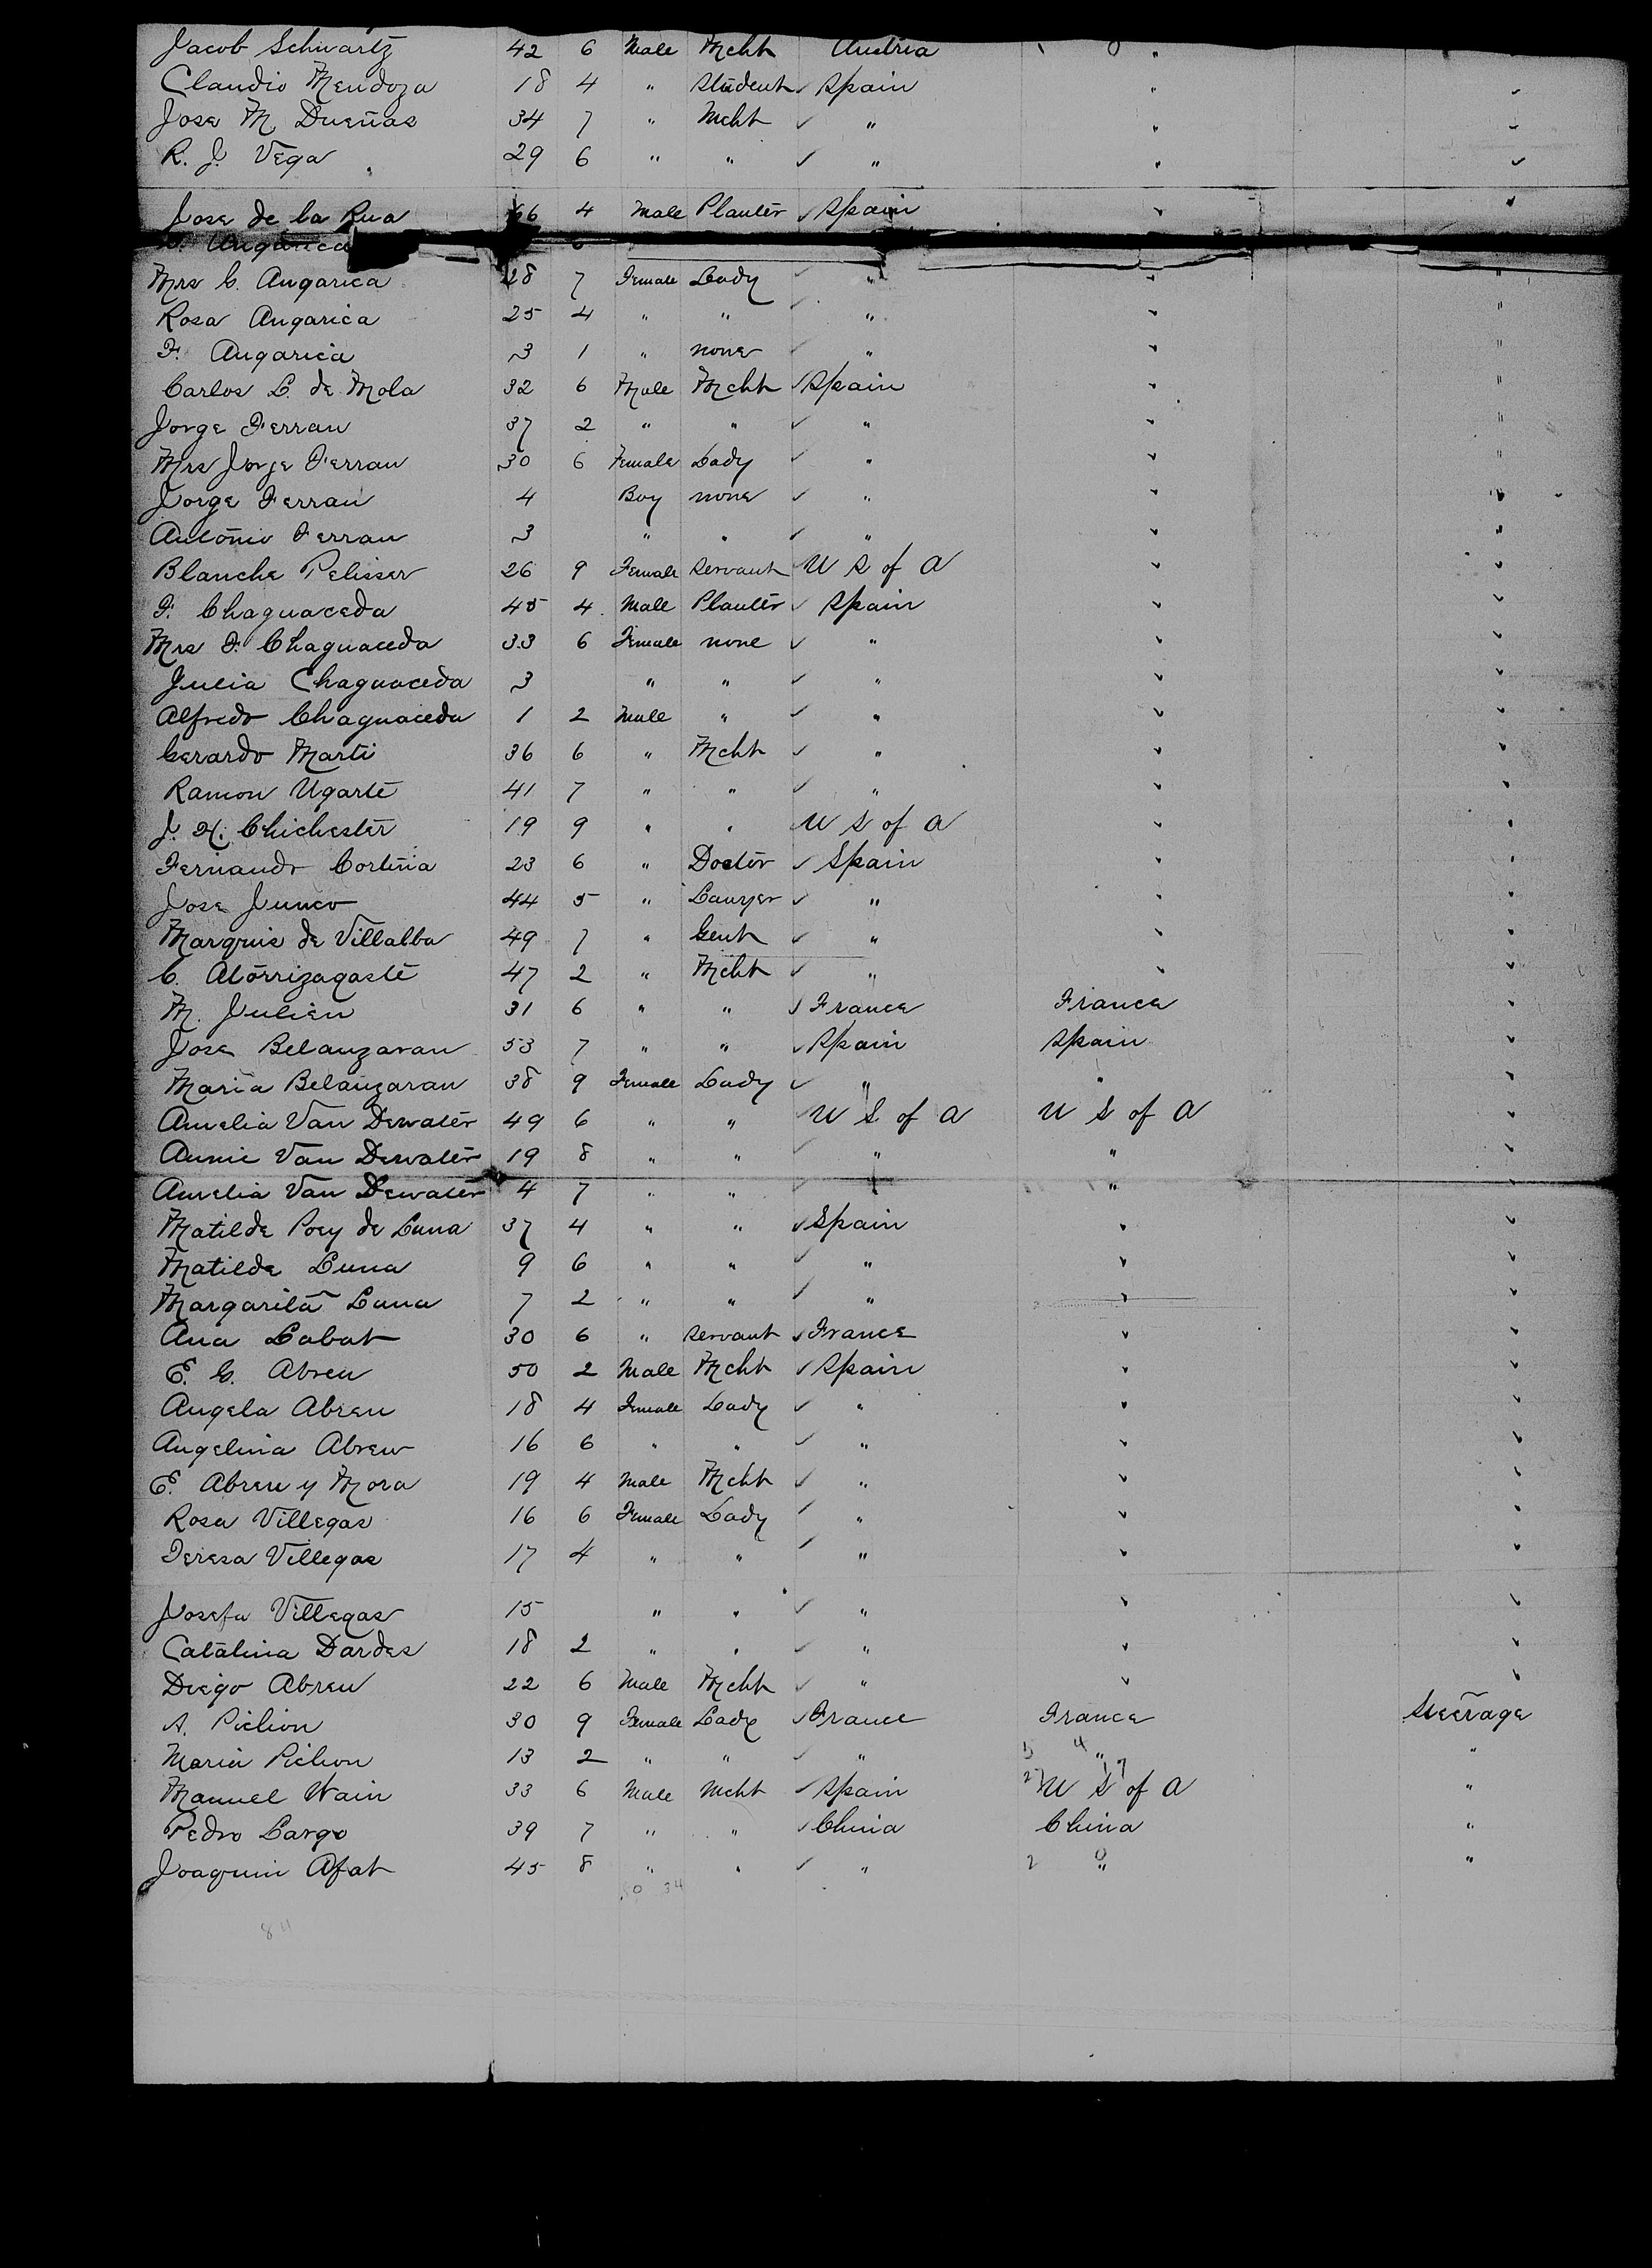 Jacob Schwartz 42 6 Male Mcht Austria "
Claudio Mendoza 18 4 " Student Spain " "
Jose M Dueñas 34 7 " Mcht " " "
R. J. Vega 29 6 " " " " "
Jose de la Rua 66 4 Male Planter Spain " "
Angarica
Mrs C. Angarica 28 7 Female Lady " " "
Rosa Angarica 25 4 " " " " "
F. Angarica 3 1 " none " " "
Carlos L. de Mola 32 6 Male Mcht Spain " "
Jorge Ferran 37 2 " " " " "
Mrs Jorge Ferran 30 6 Female Lady " " "
Jorge Ferran 4 Boy none " " "
Antonio Ferran 3 " " " " "
Blanche Pelisser 26 9 Female Servant U S of A " "
F. Chaguaceda 45 4 Male Planter Spain " "
Mrs F. Chaguaceda 33 6 Female none " " "
Julia Chaguaceda 3 " " " " "
Alfredo Chaguaceda 1 2 Male " " " "
Gerardo Marti 36 6 " Mcht " " "
Ramon Ugarte 41 7 " " " " "
J. H. Chichester 19 9 " " U S of A " "
Fernando Cortina 23 6 " Doctor Spain " "
Jose Junco 44 5 " Lawyer " " "
Marquis de Villalba 49 7 " Gent " " "
C. Atorrizagaste 47 2 " Mcht " " "
M. Julien 31 6 " " France France "
Jose Belanzaran 53 7 " " Spain Spain "
Maria Belanzaran 38 9 Female Lady " " "
Amelia Van Dewater 49 6 " " U S of A U S of A "
Annie Van Dewater 19 8 " " " " "
Amelia Van Dewater 4 7 " " " " "
Matilde Poey de Luna 37 4 " " Spain " "
Matilde Luna 9 6 " " " " "
Margarita Luna 7 2 " " " " "
Ana Labat 30 6 " Servant France " "
E. G. Abreu 50 2 Male Mcht Spain " "
Angela Abreu 18 4 Female Lady " " "
Angelina Abreu 16 6 " " " " "
E. Abreu y Mora 19 4 Male Mcht " " "
Rosa Villegas 16 6 Female Lady " " "
Teresa Villegas 17 4 " " " " "
Josefa Villegas 15 " " " " "
Catalina Dardes 18 2 " " " " "
Diego Abreu 22 6 Male Mcht " " "
A. Pichon 30 9 Female Lady France France Steerage
Maria Pichon 13 2 " " " " "
Manuel Wain 33 6 Male Mcht Spain U S of A "
Pedro Largo 39 7 " " China China "
Joaquin Afat 45 8 " " " " "